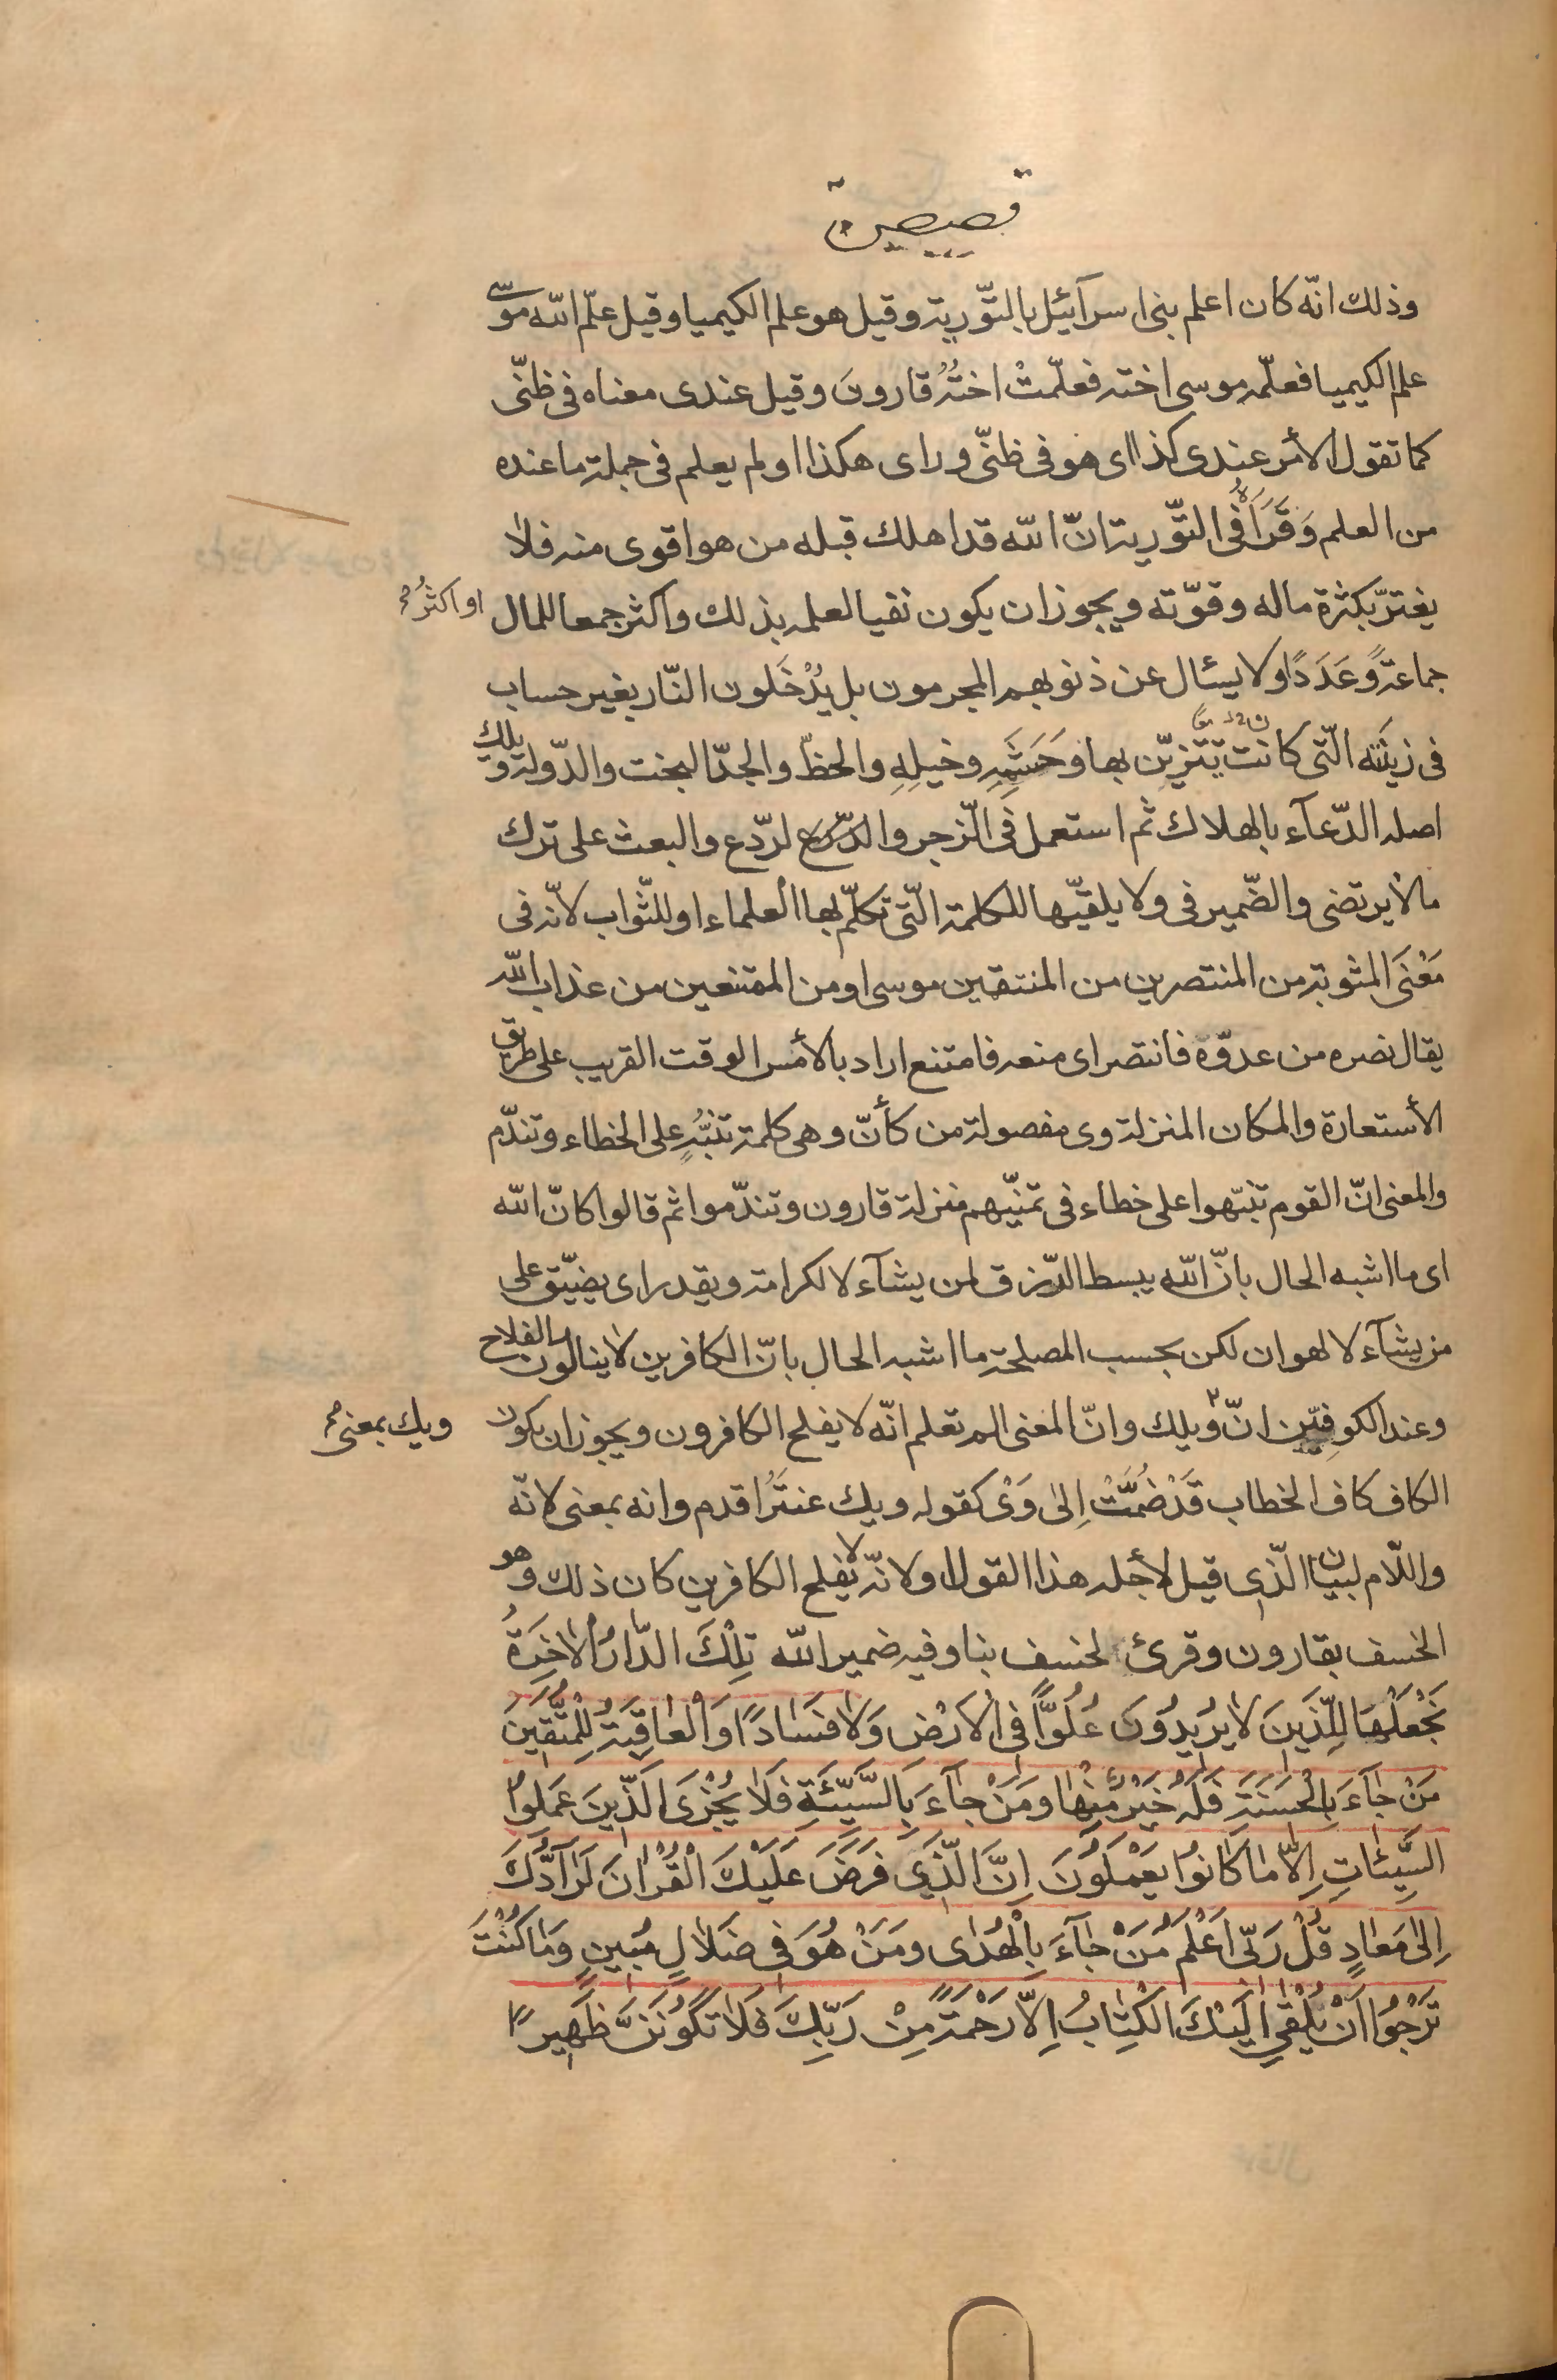 وذلك انّه كان اعلم بنى اسرآئيل بالتّورية وقيل هو علم الكيميا وقيل علّم اللّه موسى
علم الكيميا فعلّمه موسى اخته فعلّمتْ اختُهُ قارونَ وقيل عندى معناه فى ظنّى
كما تقول الأمر عندى كذا اى هو فى ظنّى وراى هكذا اولم يعلم فى جملة ما عنده
من العلم وَقَرَاَهُ فى التّورية انّ اللّه قد اهلك قبله من هو اقوى منه فلا
يغترّ بكثرة ماله وقوّته ويجوز ان يكون نفيا لعلمه بذلك واكثر جمعا للمال او اكثرُ
جماعةً وَعَدَدًا ولا يسئال عن ذنوبهم المجرمون بل يُدْخَلون النّار بغير حساب
فى زينته الّتى كانت يتزيّن بها وحَشَمِهِ وخيلِهِ والحظّ والجدّ البخت والدّولة وويلك
اصله الدّعآء بالهلاك ثم استعمل فى الزّجر والرّدع والبعث على ترك
ما لا يرتضى والضّمير فى ولا يلقّيها للكلمة الّتى تكلّم بها العلماء او للثّواب لانّه فى
مَعْنَى المثوبة من المنتصرين من المنتقمين موسى او من الممتنعين من عذاب اللّه
يقال نصره من عدوّه فانتصر اى منعه فامتنع اراد بالأمس الوقت القريب على طريق
الأستعارة والمكان المنزلة وى مفصولة من كأنّ وهى كلمة تنبُّهٍ على الخطاء وتندّم
والمعنى انّ القوم تنبّهوا على خطاء فى تمنّيهم منزلة قارون وتندّموا ثم قالوا كانّ اللّه
اى ما اشبه الحال بانّ اللّه يبسط الرّزق لمن يشآء لا لكرامة ويقدر اى يضيّق على
من يشآء لا لهوان لكن بحسب المصلحة ما اشبه الحال بانّ الكافرين لا ينالون الفلاح
وعند الكوفيّين انّ ويلك وانّ المعنى الم تعلم انّه لا يفلح الكافرون ويجوز ان يكون ويك بمعنى
الكاف كاف الخطاب قَدْ ضُمَّتْ اِلىٰ وَىْ كقوله ويك عنتَرُ اقدم وانه بمعنى لانّه
واللّام لبيان الّذى قيل لأجله هذا القول او لانّه لا يفلح الكافرين كان ذلك وهو
الخسف بقارون وقرئ لخسف بنا وفيه ضمير اللّه تِلْكَ الدّارُ الْاٰخِرَةُ
نَجْعَلُهَا لِلَّذينَ لا يُريدُونَ عُلُوًّا فِى الْاَرْضِ وَلا فَسَادًا وَالْعاقِبَةُ لِلْمُتَّقِينَ
مَنْ جٰآءَ بِالْحَسَنَةِ فَلَهُ خَيْرٌ مِنْهٰا وَمَنْ جٰآءَ بِالسَّيِّئَةِ فَلاٰ يُجْزَى الَّذينَ عَمِلُوا
السَّيِّئٰاتِ اِلاّٰ مٰا كٰانُوا يَعْمَلُونَ اِنَّ الَّذى فَرَضَ عَلَيْكَ الْقُرْاٰنَ لَرٰآدُّكَ
اِلىٰ مَعٰادٍ قُلْ رَبّى اَعْلَمُ مَنْ جٰآءَ بِالْهُدٰى وَمَنْ هُوَ فى ضَلاٰلٍ مُبينٍ وَمٰا كُنْتَ
تَرْجُوا اَنْ يُلْقىٰ اِلَيْكَ الْكِتٰابُ اِلاّٰ رَحْمَةً مِنْ رَبِّكَ فَلاٰ تَكُونَنَّ ظَهيرًا